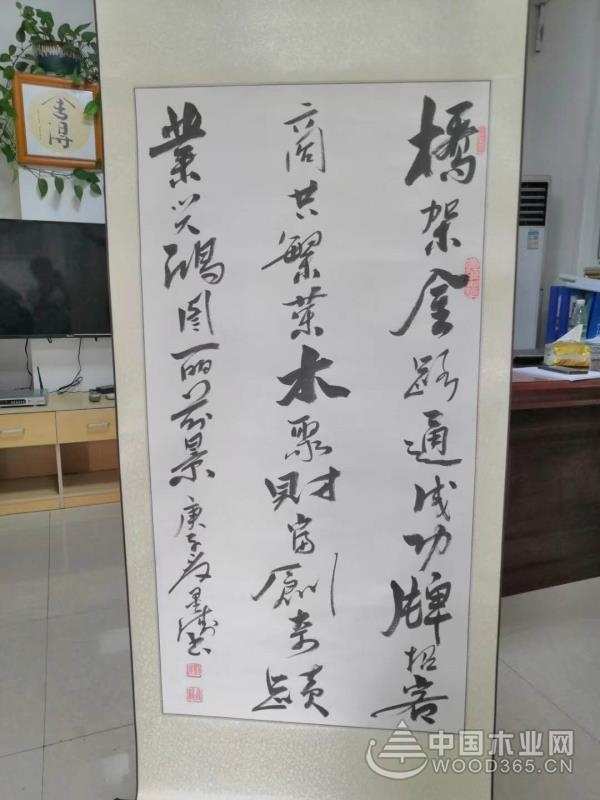 橋架金路通成功牌招客
商共繁荣木聚財富創奇蹟
業兴鴻图丽前景
庚子夏
舍得
中国木业网
WOOD365.CN